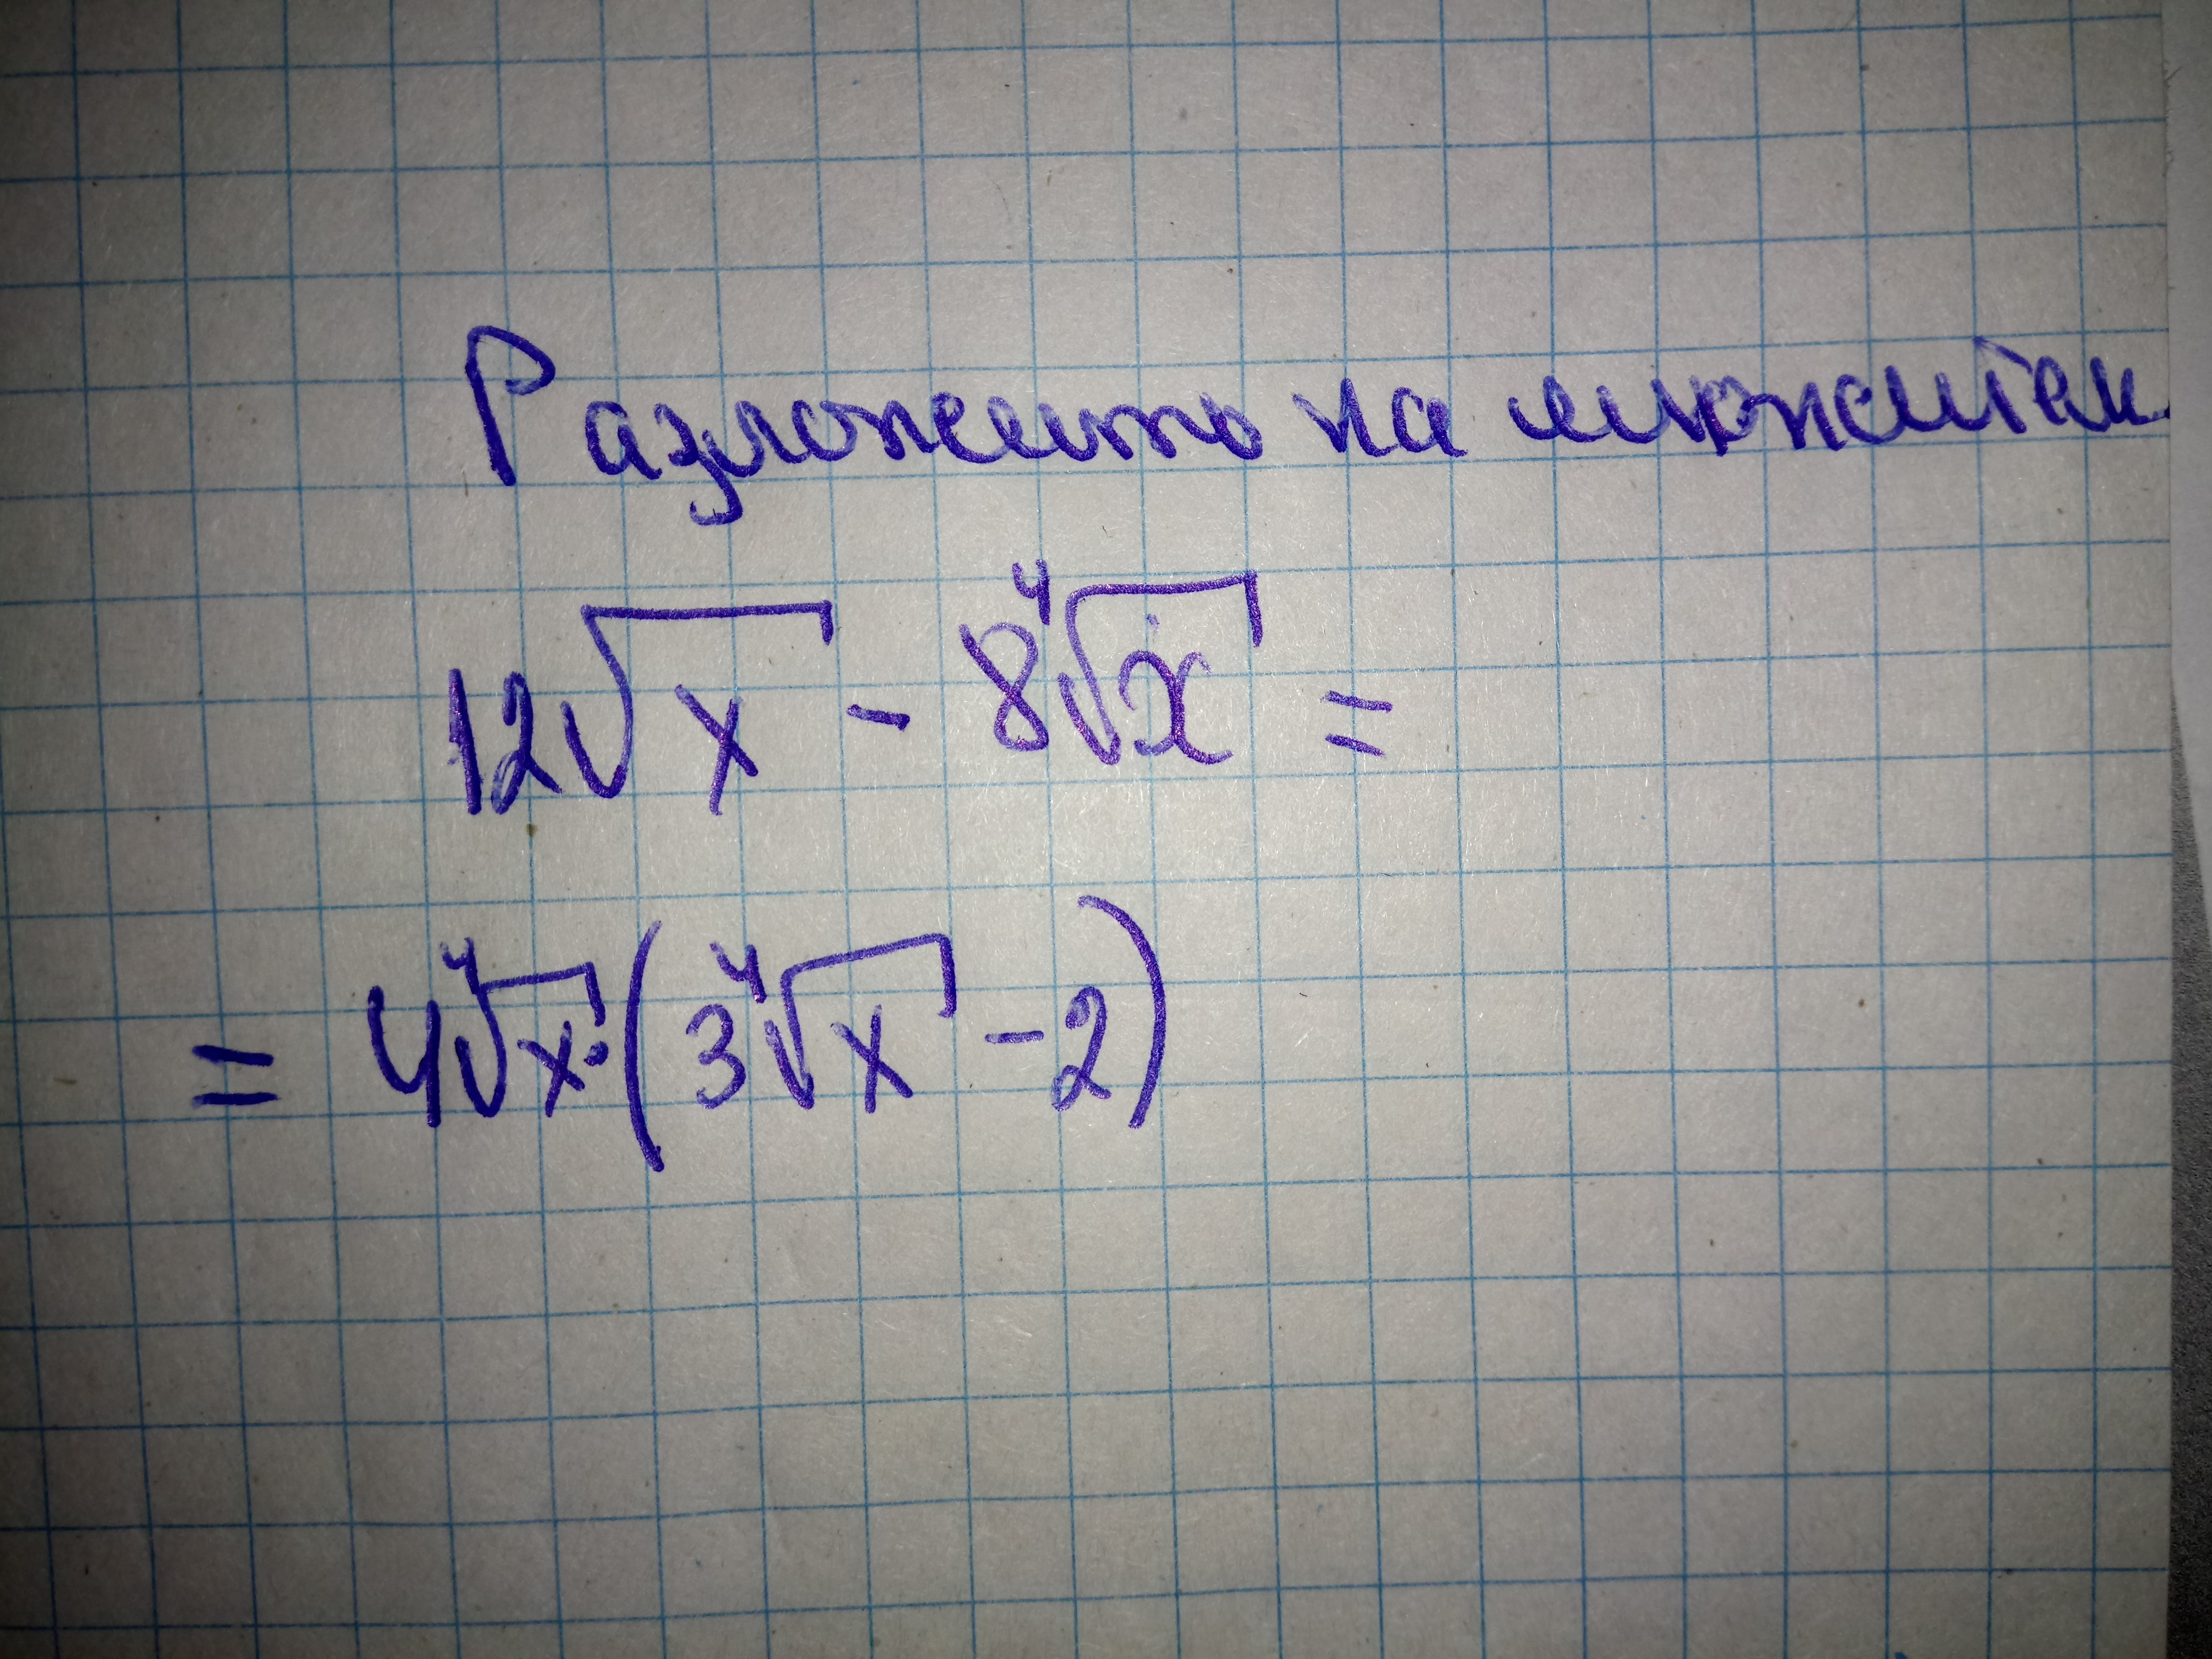 Разложить на множители
12√x - 8⁴√x =
= 4⁴√x·(3⁴√x - 2)